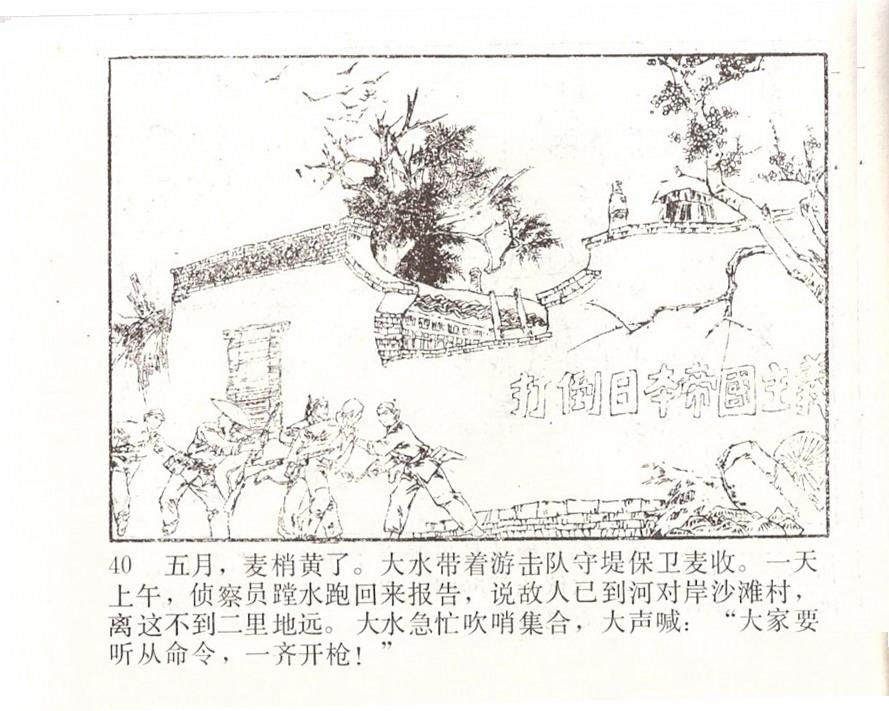 打倒日本帝國主義
40 五月，麦梢黄了。大水带着游击队守堤保卫麦收。一天
上午，侦察员蹚水跑回来报告，说敌人已到河对岸沙滩村，
离这不到二里地远。大水急忙吹哨集合，大声喊：“大家要
听从命令，一齐开枪！”